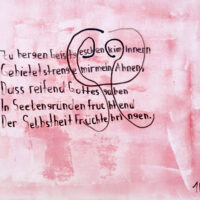 Zu bergen Geisteschenk im Innern
Gebietet strenge mir mein Ahnen,
Dass reifend Gottesgaben
In Seelengründen fruchtend
Der Selbstheit Früchte bringen.